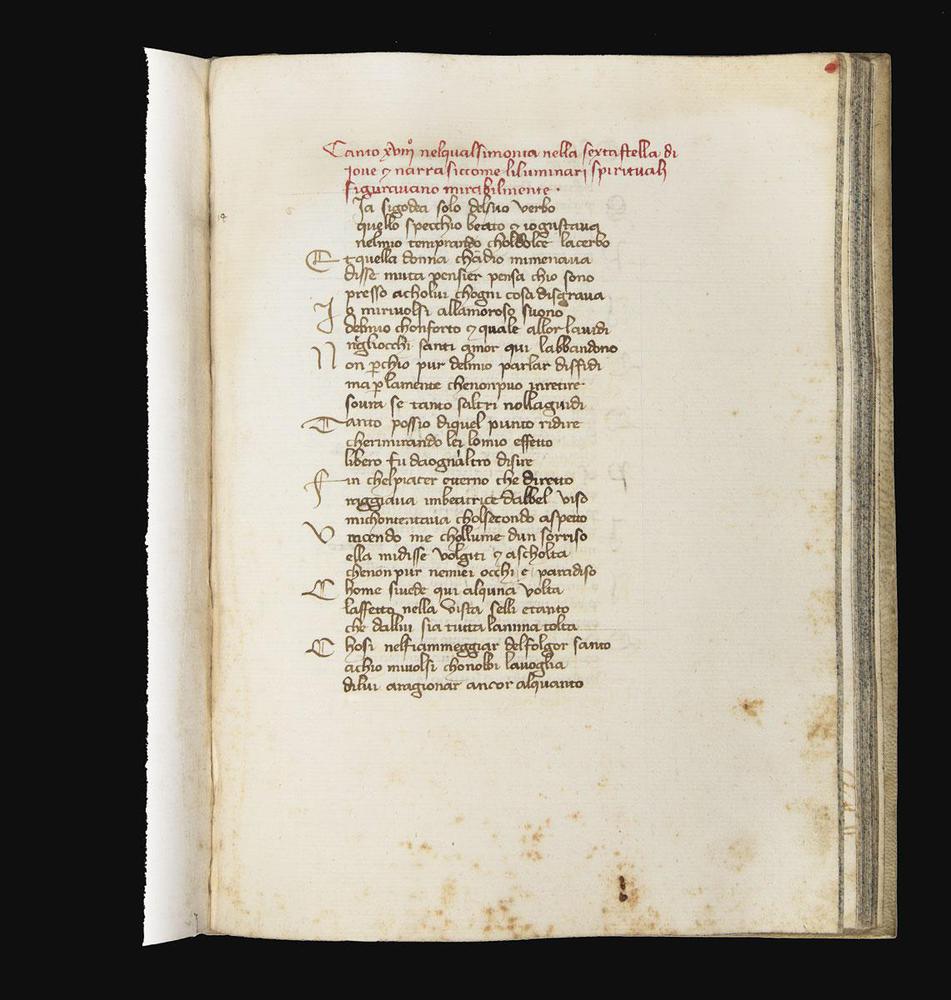 Canto xviiiº nelqualsimonta nella sexta stella di
Ioue ⁊ narra siccome liluminari spirituali
figurauano mirabilmente ·
Ia sigodea solo delsuo verbo
quello specchio beato ⁊ io gustaua
nelmio temprando choldolce lacerbo
Et quella donna chadio mimenaua
disse muta pensier pensa chio sono
presso acholui chogni cosa disgraua
Io mirivolsi allamoroso suono
delmio chonforto ⁊ quale allor lauidi
negliocchi santi amor qui labbandono
Non perchio pur delmio parlar diffidi
ma per lamente chenonpuo inretire
soura se tanto saltri nollaguidi
Tanto possio diquel punto ridire
cherimirando lei lomio effetto
libero fu daognaltro disire
Fin chelpiacer eterno che diretto
raggiaua inbeatrice dalbel viso
michontentaua cholsecondo aspetto
Vincendo me chollume dun sorriso
ella midisse volgiti ⁊ ascholta
chenon pur nemiei occhi e paradiso
Chome siuede qui alquna volta
laffetto nella vista selli etanto
che dallui sia tutta lanima tolta
Chosi nelfiammeggiar delfolgor santo
achio mivolsi chonobbi lavoglia
dilui aragionar ancor alquanto